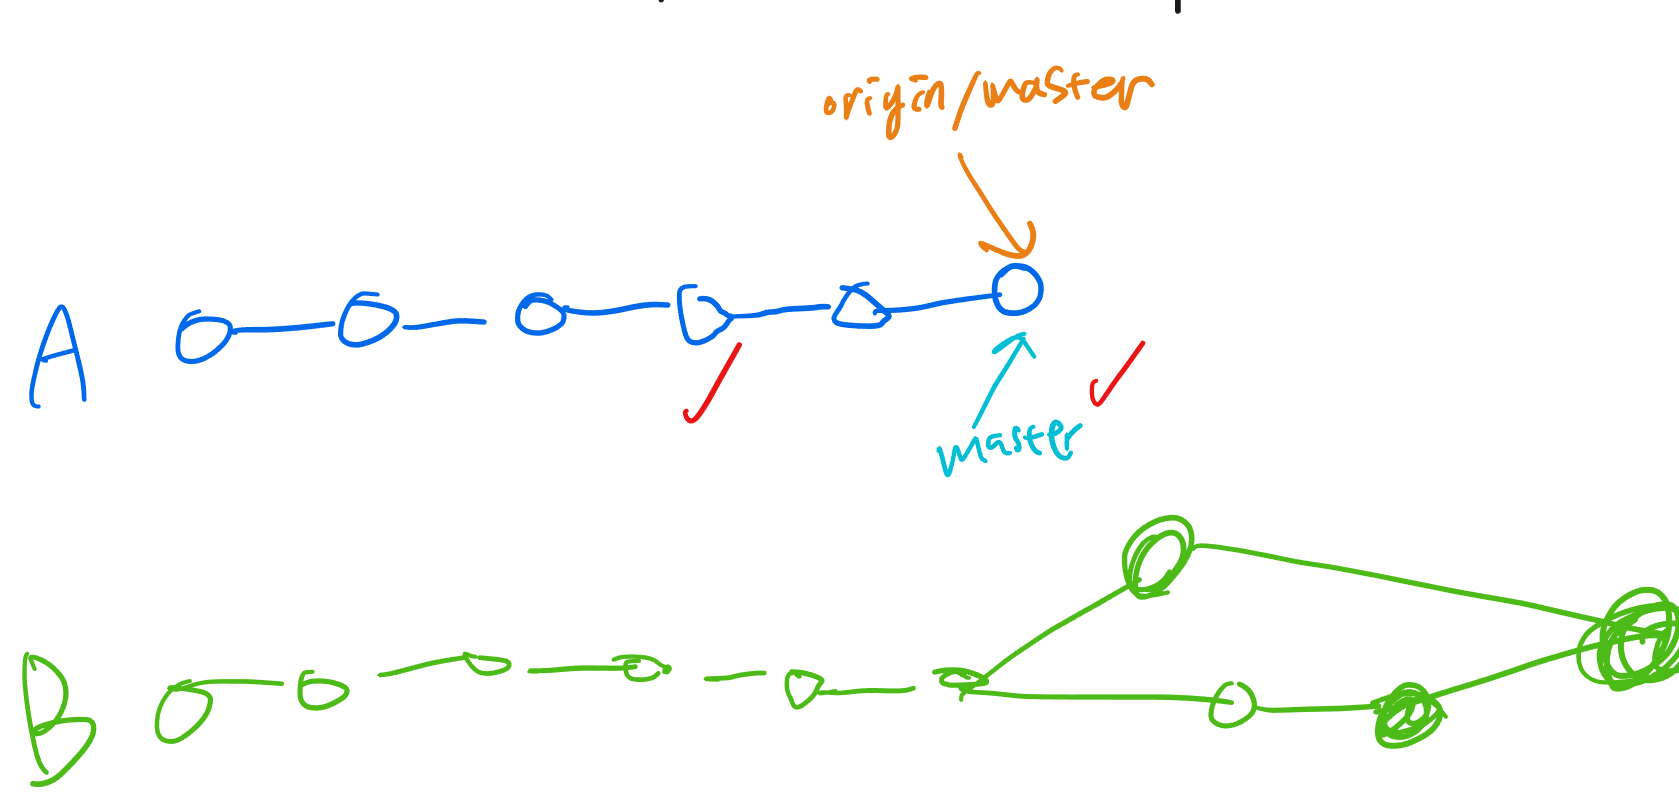 origin/master
A
master
B